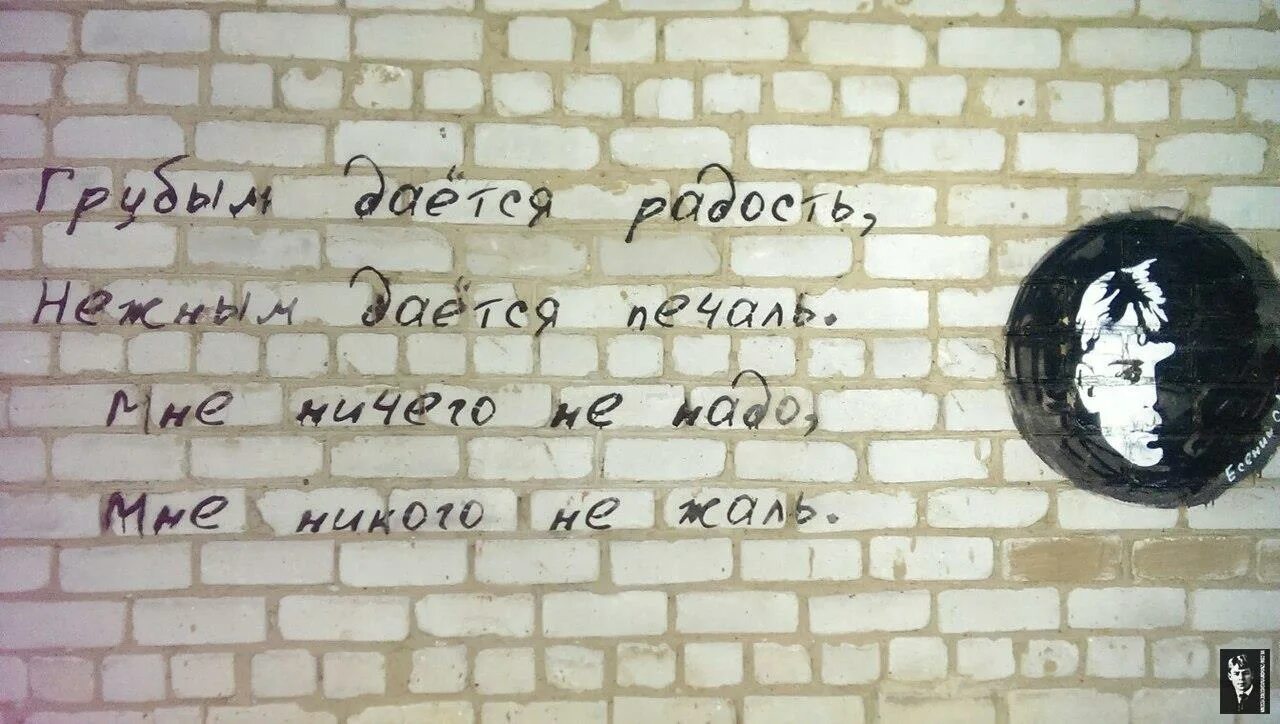 Грубым даётся радость,
Нежным даётся печаль.
Мне ничего не надо,
Мне никого не жаль.